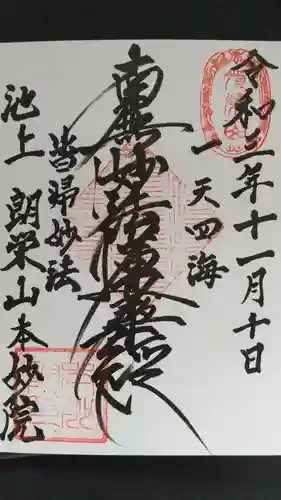 令和二年十一月十日
一天四海
南無妙法蓮華経
皆帰妙法
池上 朗栄山本妙院